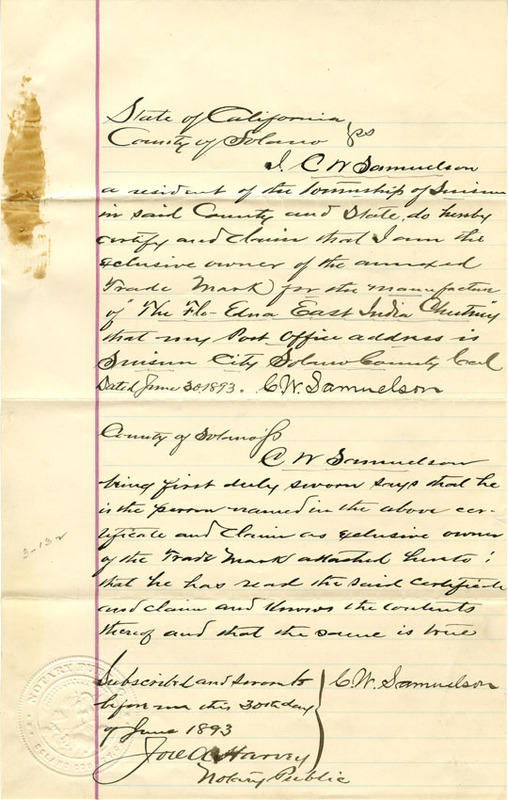 State of California
County of Solano } ss
I, C W Samuelson
a resident of the Township of Suisun
in said County and State, do hereby
certify and claim that I am the
exclusive owner of the annexed
Trade Mark for the manufacture
of "The Flo-Edna East India Chutney
that my Post Office address is
Suisun City Solano County Cal
Dated June 30, 1893. C.W. Samuelson
County of Solano } ss
C W Samuelson
being first duly sworn says that he
is the person named in the above cer-
tificate and claim as exclusive owner
of the Trade Mark attached hereto;
that he has read the said certificate
and claim and knows the contents
thereof and that the same is true
3-132
Subscribed and sworn to } C.W. Samuelson
before me this 30th day
of June 1893
Joe A Harvey
Notary Public
NOTARY PUBLIC